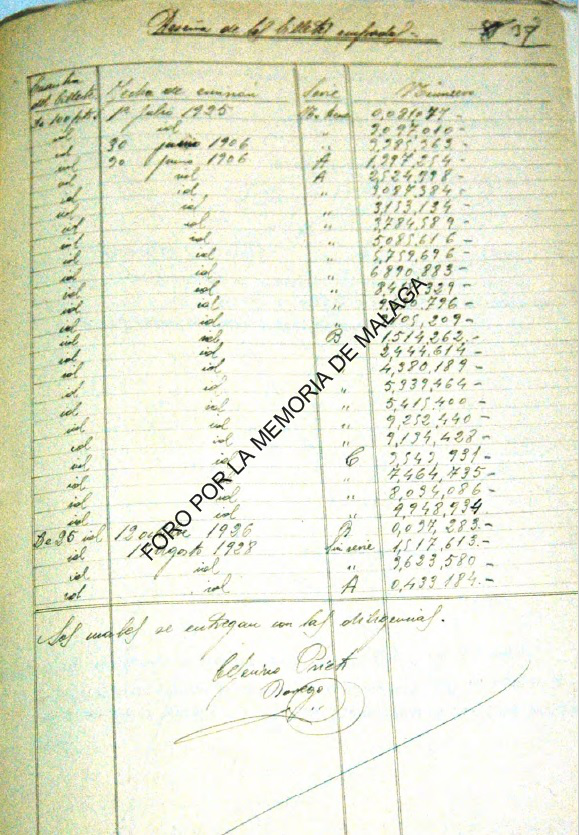 Reseña de los billetes 37
Cuantía del billete Fecha de emisión Serie Número
De 100 pts. 1º Julio 1925 0,081077-
id id " 2,097,010-
id 30 junio 1906 "
id 30 junio 1906 A 1,297,254-
id id A 2,524,998-
id id " 3087384-
id id " 3,153,134-
id id " 3,784,589-
id id " 5,085,616-
id id " 5,759,696-
id id " 6,890,883-
id id " 329-
id id " 796-
id id " 209-
id id B 1,514,262-
id id " 2,444,614-
id id " 4,380,189-
id id " 5,939,464-
id id " 5,415,400-
id id " 9,252,440-
id id " 9,134,428-
id id C 3,543,931-
id id " 7,464,735-
id id " 8,034,086-
id id " 9,948,934
De 25 id 12 1926 0,037,283-
id agosto 1928 Sin serie 1,517,613-
id id " 3,623,580-
id id A 0,433,184-
Los cuales se entregan con las diligencias.
Ceferino Prieto
FORO POR LA MEMORIA DE MALAGA